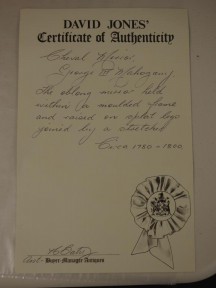 DAVID JONES'
Certificate of Authenticity
Cheval Mirror
George III Mahogany
The oblong mirror held
within a moulded frame
and raised on splat legs
joined by a stretcher
Circa 1780 - 1800
Buyer-Manager Antiques